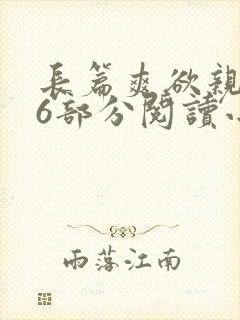 長篇爽欲親
6部分閱讀小
雨落江南